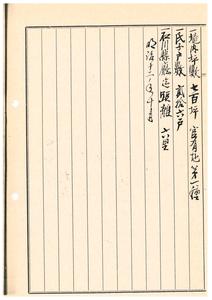 一境内坪数 七百坪 官有地第一種
一氏子戸数 貳拾六戸
一石川縣廳迄距離 六里
明治十二年十月